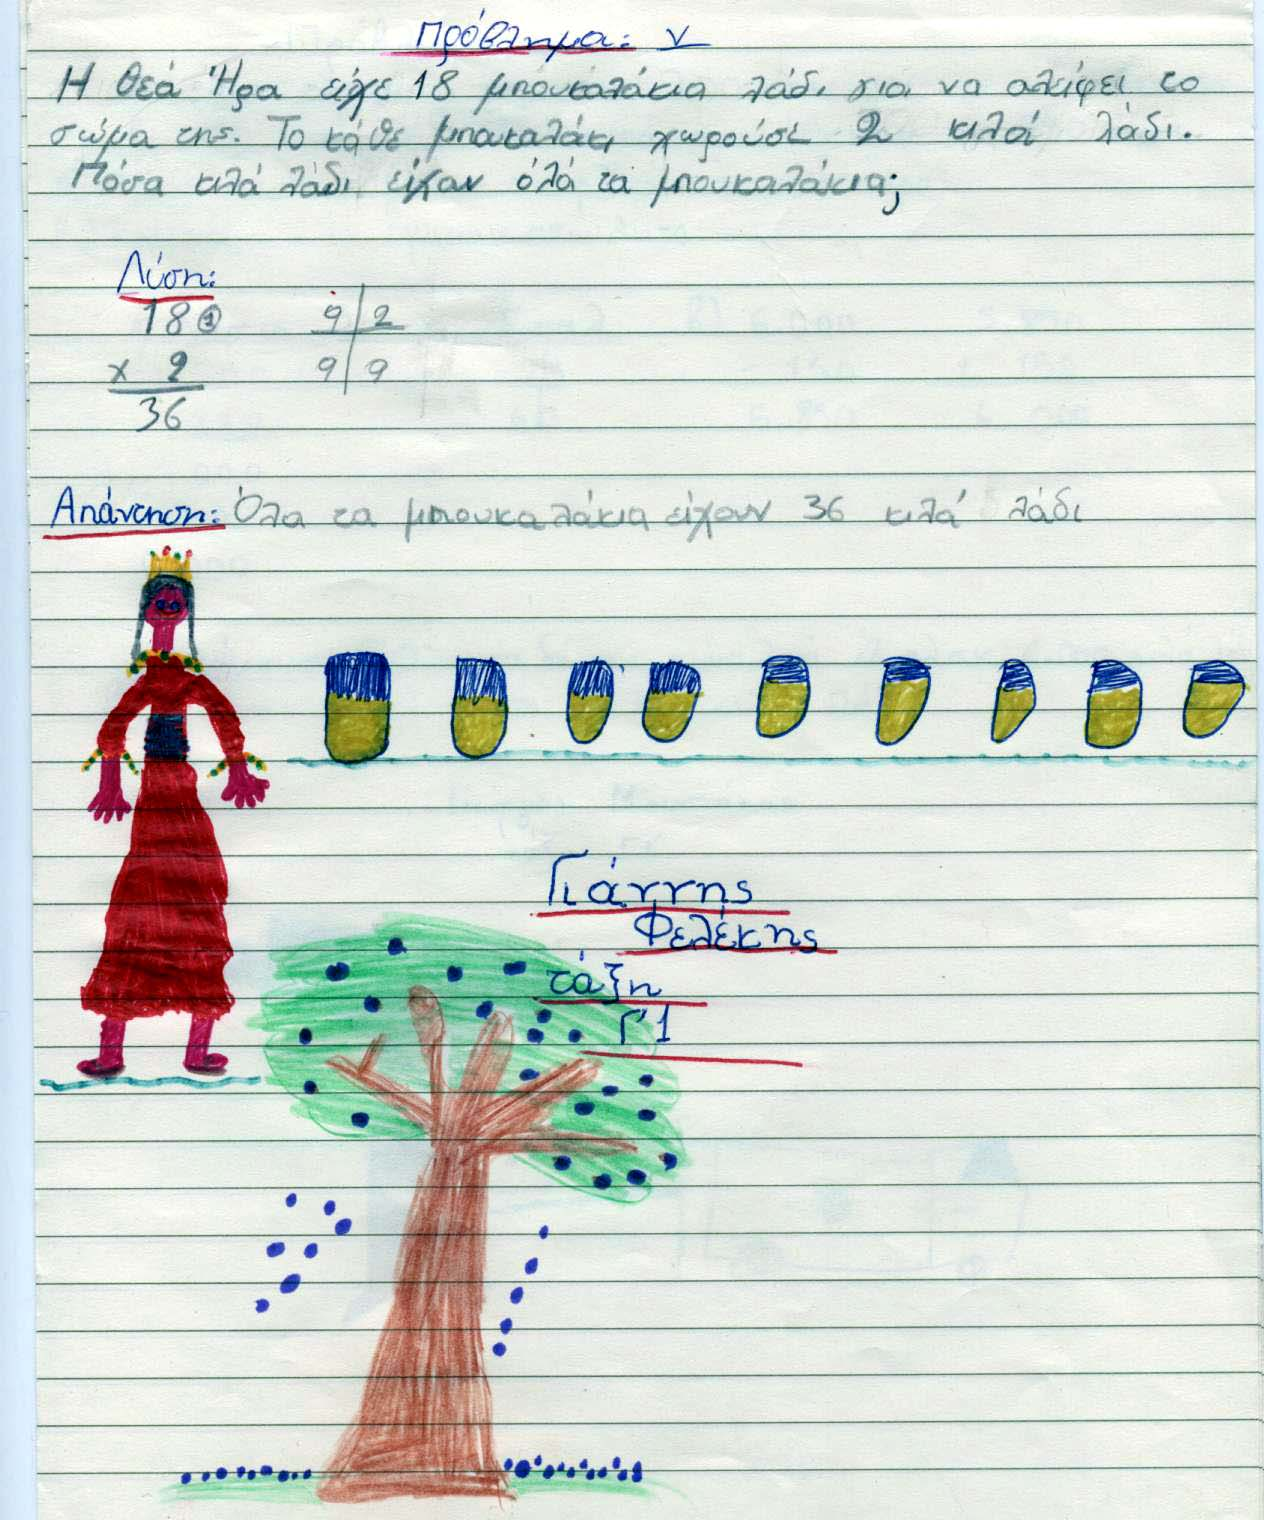 Πρόβλημα: V
Η θεά Ήρα είχε 18 μπουκαλάκια λάδι για να αλείφει το
σώμα της. Το κάθε μπουκαλάκι χωρούσε 2 κιλά λάδι.
Πόσα κιλά λάδι είχαν όλα τα μπουκαλάκια;
Λύση:
18 1 9 2
x 2 9 9
36
Απάντηση: Όλα τα μπουκαλάκια είχαν 36 κιλά λάδι
Γιάννης
Φελέκης
τάξη
Γ'1